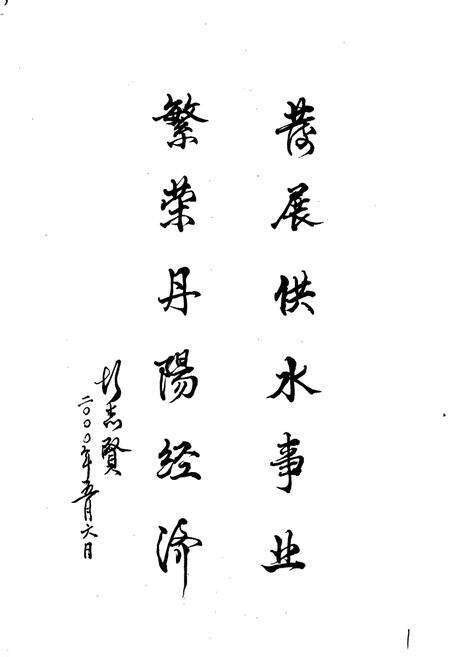 發展供水事业
繁荣丹陽经济
志賢
二〇〇〇年五月六日
1